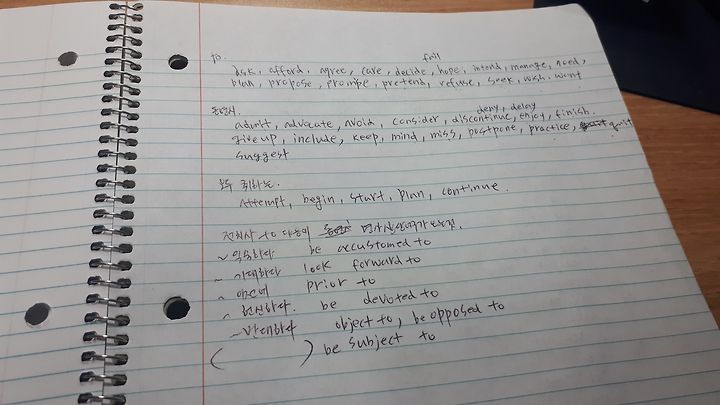 to.
fail
ask, afford, agree, care, decide, hope, intend, manage, need,
plan, propose, promise, pretend, refuse, seek, wish, want
동명사.
deny, delay
admit, advocate, avoid, consider, discontinue, enjoy, finish.
give up, include, keep, mind, miss, postpone, practice, quit
suggest
모두 취하는.
Attempt, begin, start, plan, continue.
전치사 to 다음에
~익숙하다 be accustomed to
~기대하다 look forward to
~ prior to
~헌신하다. be devoted to
~반대하다 object to, be opposed to
( ) be subject to